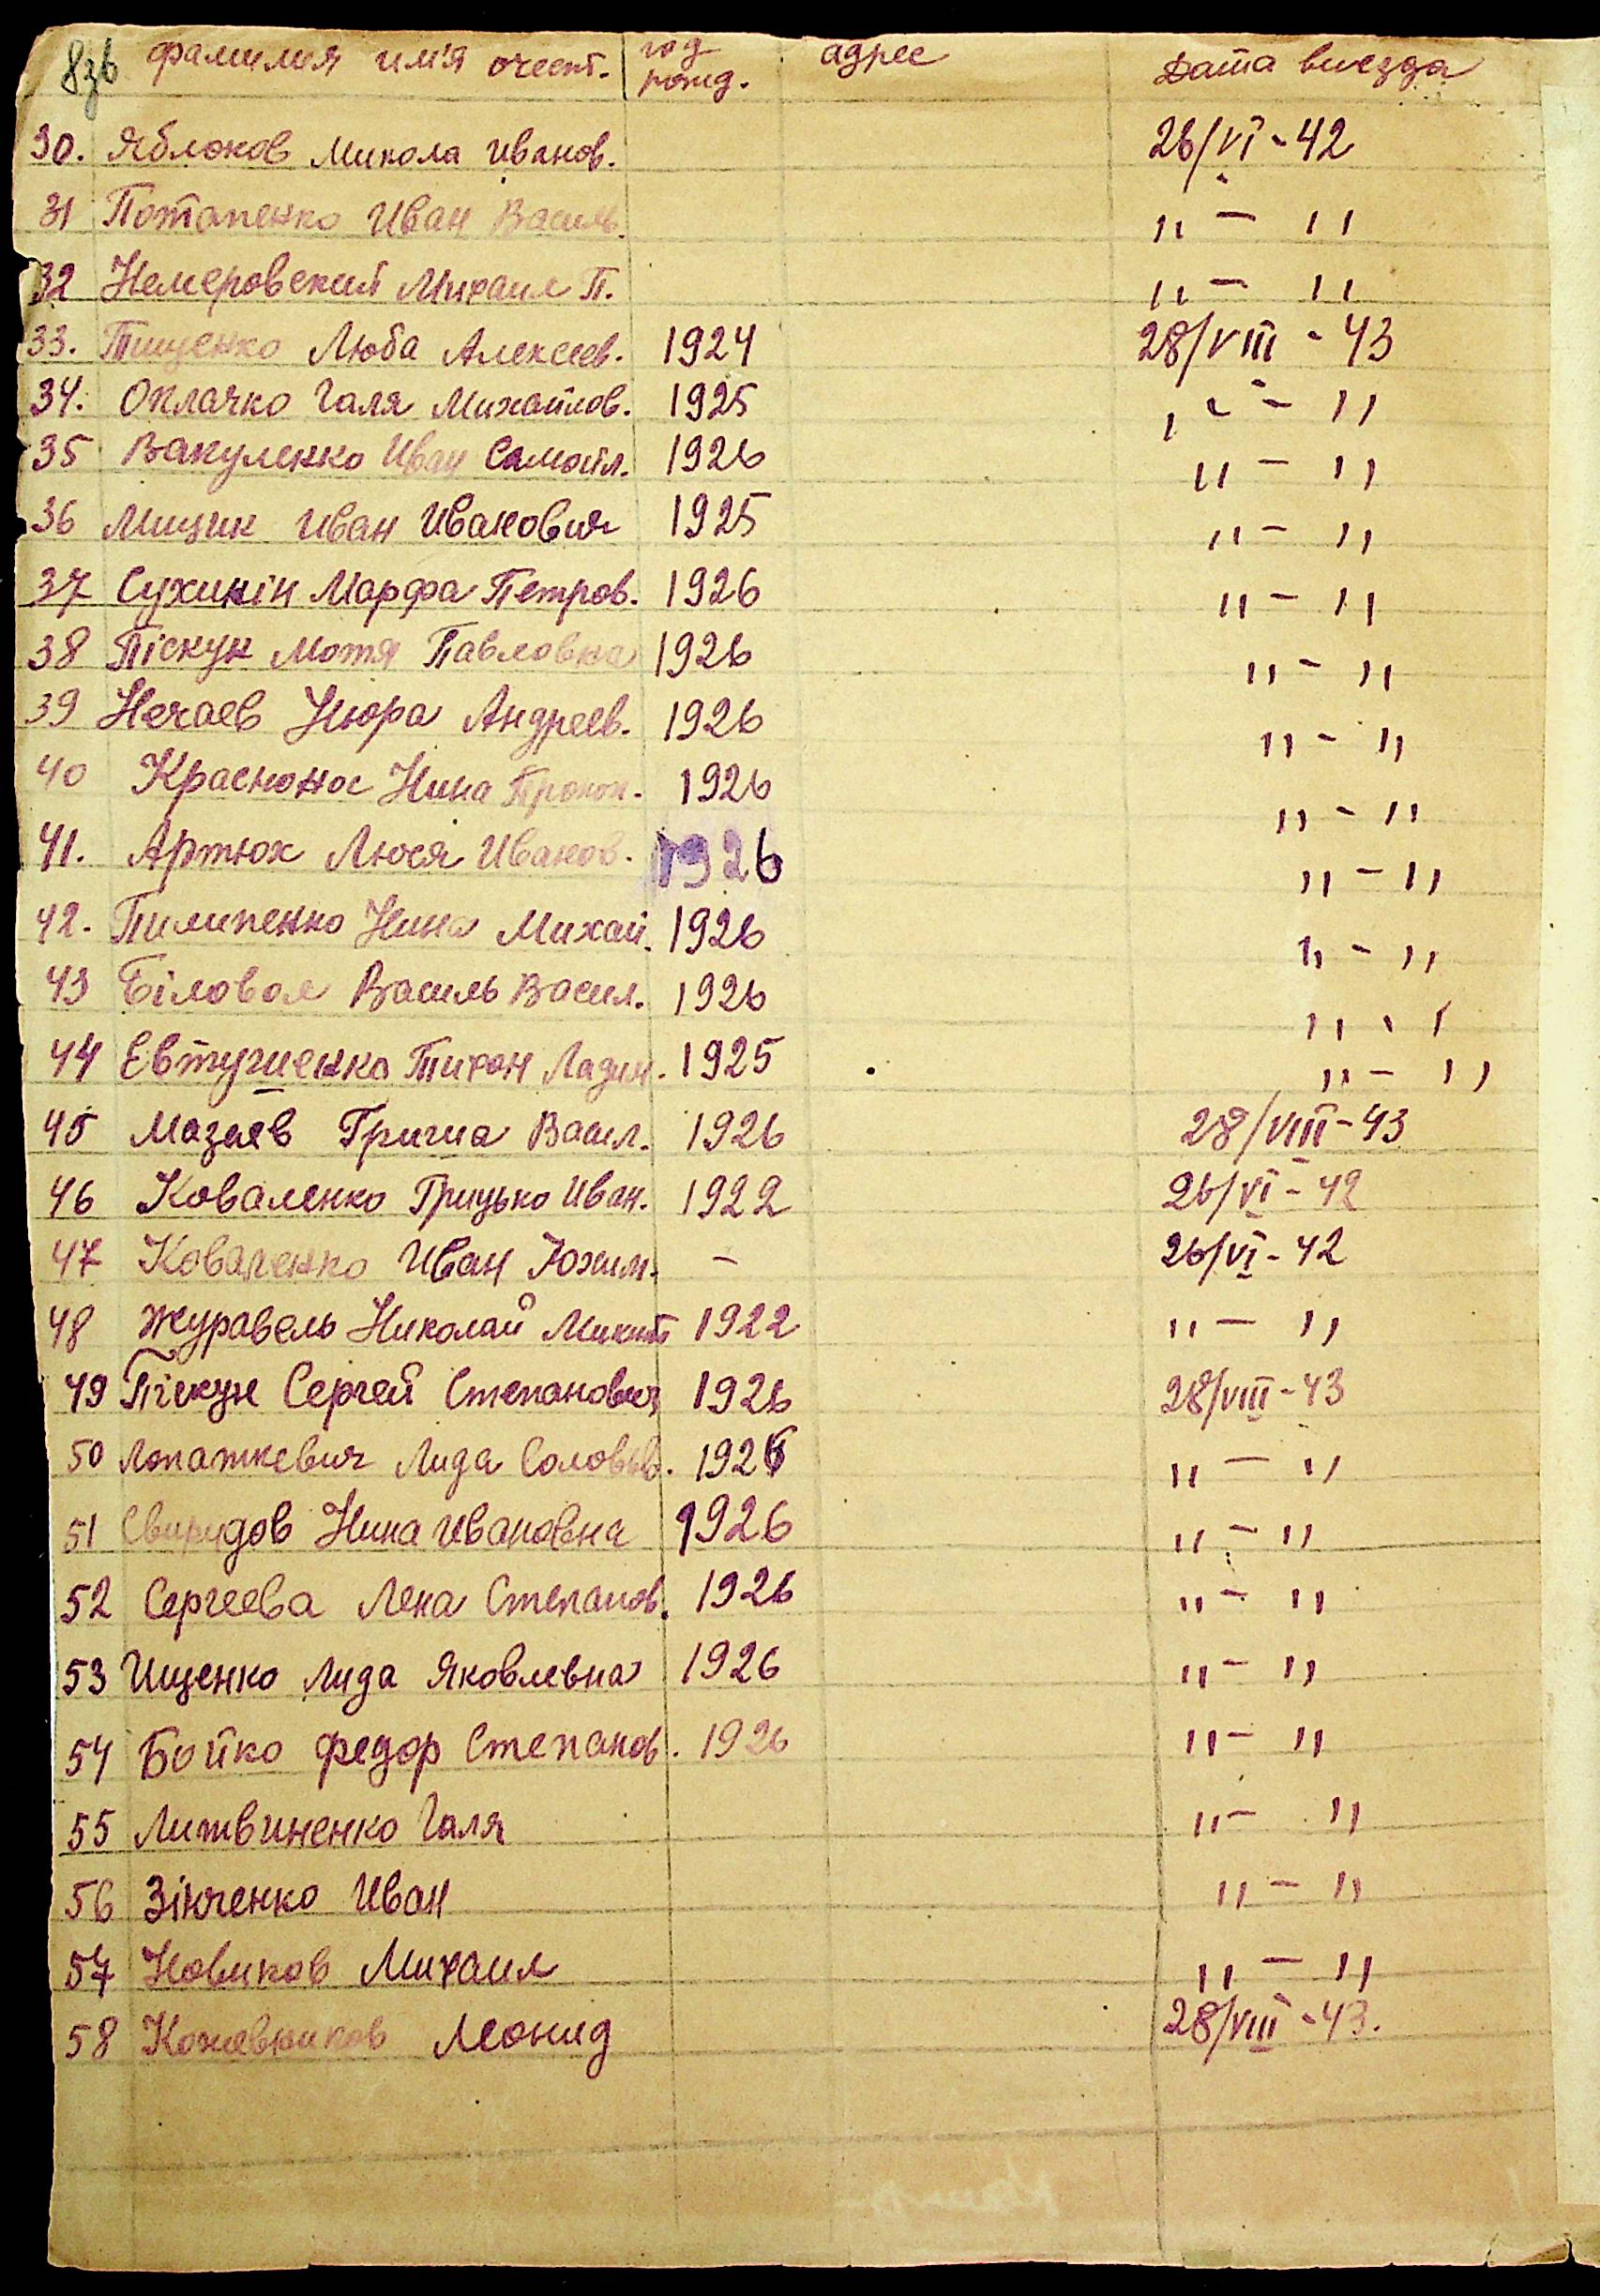 8зв фамилия имʼя отчест. год рожд. адрес Дата виезда
30. Яблоков Микола Иванов. 26/VI - 42
31 Потапенко Иван Василь. ,, — ,,
32 Немеровский Михаил П. ,, — ,,
33. Тищенко Люба Алексеев. 1924 28/VIII - 43
34. Оплачко Галя Михайлов. 1925 ,, — ,,
35 Вакуленко Иван Самойл. 1926 ,, — ,,
36 Мицик Иван Иванович 1925 ,, — ,,
37 Сухинін Марфа Петров. 1926 ,, — ,,
38 Піскун Мотя Павловна 1926 ,, — ,,
39 Нечаев Нюра Андреев. 1926 ,, — ,,
40 Краснонос Нина Прокоп. 1926 ,, — ,,
41. Артюх Люся Иванов. 1926 ,, — ,,
42. Пилипенко Нина Михай. 1926 ,, — ,,
43 Біловол Василь Васил. 1926 ,, - ,
44 Евтушенко Тихон 1925 ,, — ,,
45 Мазаев Гриша Васил. 1926 28/VIII - 43
46 Коваленко Грицько Иван. 1922 26/VI - 42
47 Коваленко Иван Юхим. — 26/VI - 42
48 Журавель Николай Микит 1922 ,, — ,,
49 Піскун Сергей Степанович 1926 28/VIII - 43
50 Лопаткевич Лида 192 ,, — ,,
51 Свиридов Нина Ивановна 1926 ,, — ,,
52 Сергеева Лена Степанов. 1926 ,, — ,,
53 Ищенко Лида Яковлевна 1926 ,, — ,,
54 Бойко Федор Степанов. 1926 ,, — ,,
55 Литвиненко Галя ,, — ,,
56 Зінченко Иван ,, — ,,
57 Новиков Михаил ,, — ,,
58 Кожевников Леонид 28/VIII - 43.